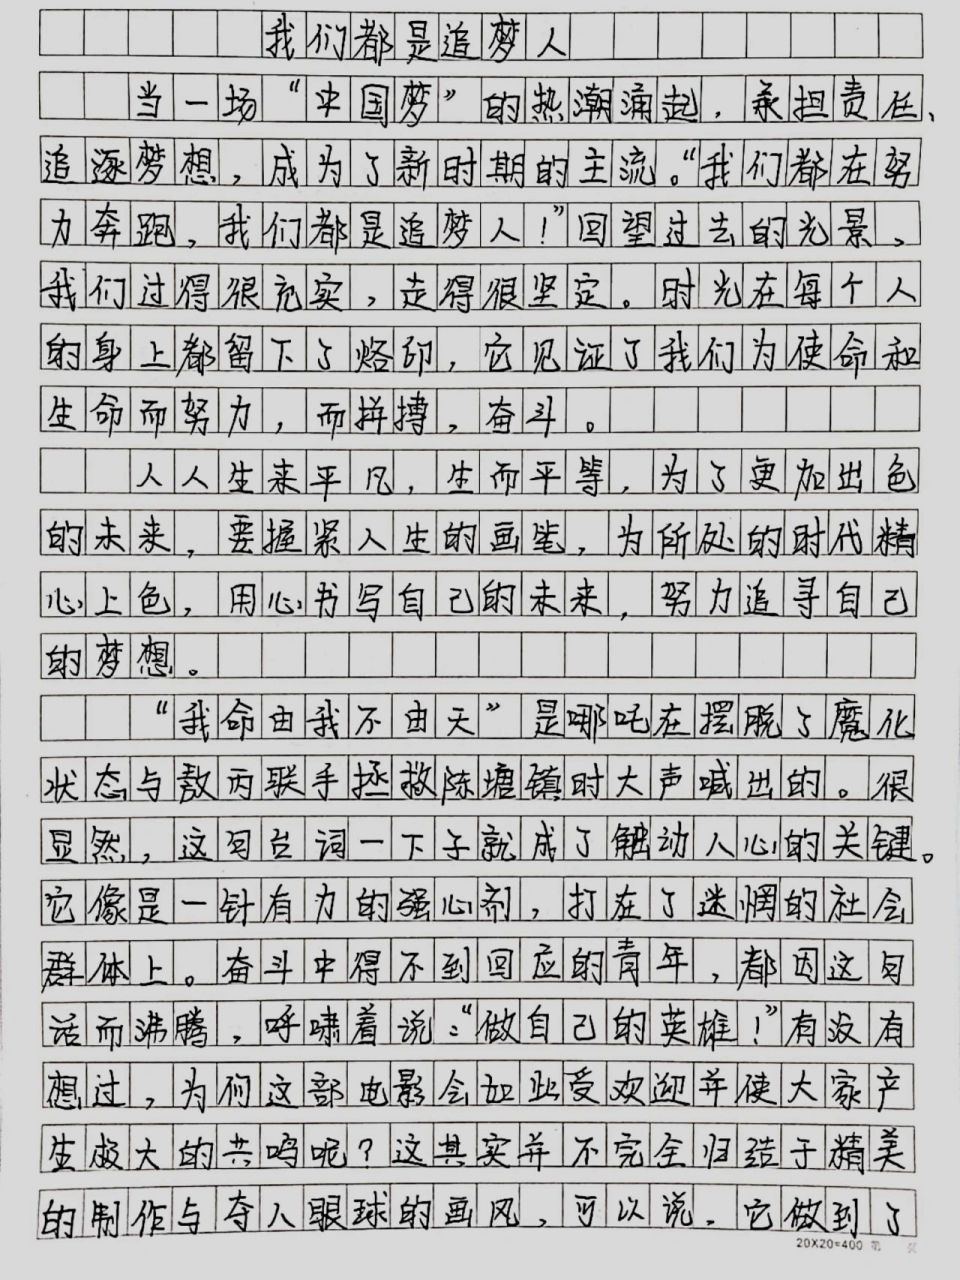 我们都是追梦人
当一场“中国梦”的热潮涌起，承担责任、
追逐梦想，成为了新时期的主流。“我们都在努
力奔跑，我们都是追梦人！”回望过去的光景，
我们过得很充实，走得很坚定。时光在每个人
的身上都留下了烙印，它见证了我们为使命和
生命而努力，而拼搏，奋斗。
人人生来平凡，生而平等，为了更加出色
的未来，要握紧人生的画笔，为所处的时代精
心上色，用心书写自己的未来，努力追寻自己
的梦想。
“我命由我不由天”是哪吒在摆脱了魔化
状态与敖丙联手拯救陈塘镇时大声喊出的。很
显然，这句台词一下子就成了触动人心的关键。
它像是一针有力的强心剂，打在了迷惘的社会
群体上。奋斗中得不到回应的青年，都因这句
话而沸腾，呼啸着说：“做自己的英雄！”有没有
想过，为何这部电影会如此受欢迎并使大家产
生极大的共鸣呢？这其实并不完全归造于精美
的制作与夺人眼球的画风，可以说，它做到了
20X20=400 第 页